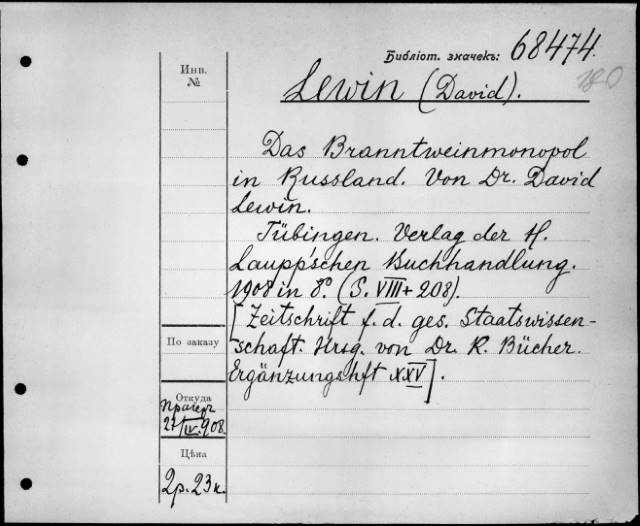 Библіот. значекъ: 68474.
180
Инв.
№
Lewin (David).
Das Branntweinmonopol
in Russland. Von Dr. David
Lewin.
Tübingen. Verlag der H.
Laupp'schen Buchhandlung.
1908 in 8º. (S. VIII + 208).
[Zeitschrift f. d. ges. Staatswissen-
schaft. Hrsg. von Dr. K. Bücher.
Ergänzungshft XXV].
По заказу
Откуда
27/IV.908
Цѣна
2р. 23к.